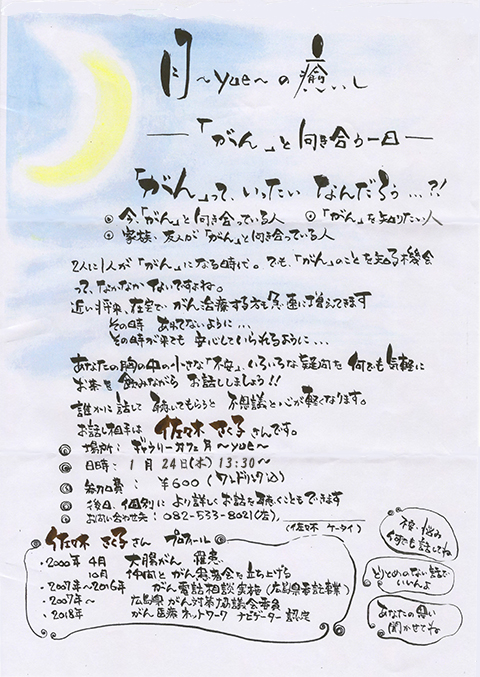 月 ～yue～ の 癒し
―「がん」と向き合う一日―
「がん」って、いったい なんだろう…?!
◎ 今、「がん」と向き合っている人　◎ 「がん」を知りたい人
◎ 家族、友人が「がん」と向き合っている人
2人に1人が「がん」になる時代。でも、「がん」のことを知る機会
って、なかなかないですよね。
近い将来、在宅でがん治療する方も急速に増えてきます
その時 あわてないように…
その時が来ても 安心していられるように…
あなたの胸の中の小さな「不安」、いろいろな疑問を 何でも気軽に
お茶を飲みながら お話ししましょう!!
誰かに話して 聴いてもらうと 不思議と心が軽くなります。
お話し相手は 佐々木 さく子 さんです。
◎ 場所: ギャラリーカフェ 月 ～yue～
◎ 日時: 1月24日(木) 13:30～
◎ 参加費: ¥600 (ワンドリンク込)
◎ 後日、個別により詳しくお話を聴くこともできます
◎ お問い合わせ先: 082-533-8021(店)、
(佐々木 ケータイ)
佐々木 さく子さん プロフィール
・2000年 4月 大腸がん 罹患
10月 仲間とがん患者会を立ち上げる
・2007年～2016年 がん電話相談実施 (広島県委託事業)
・2007年～ 広島県がん対策協議会委員
・2018年 がん医療ネットワークナビゲーター 認定
不安、悩み
何でも話してね
とりとめのない話で
いいんよ
あなたの思い
聞かせてね